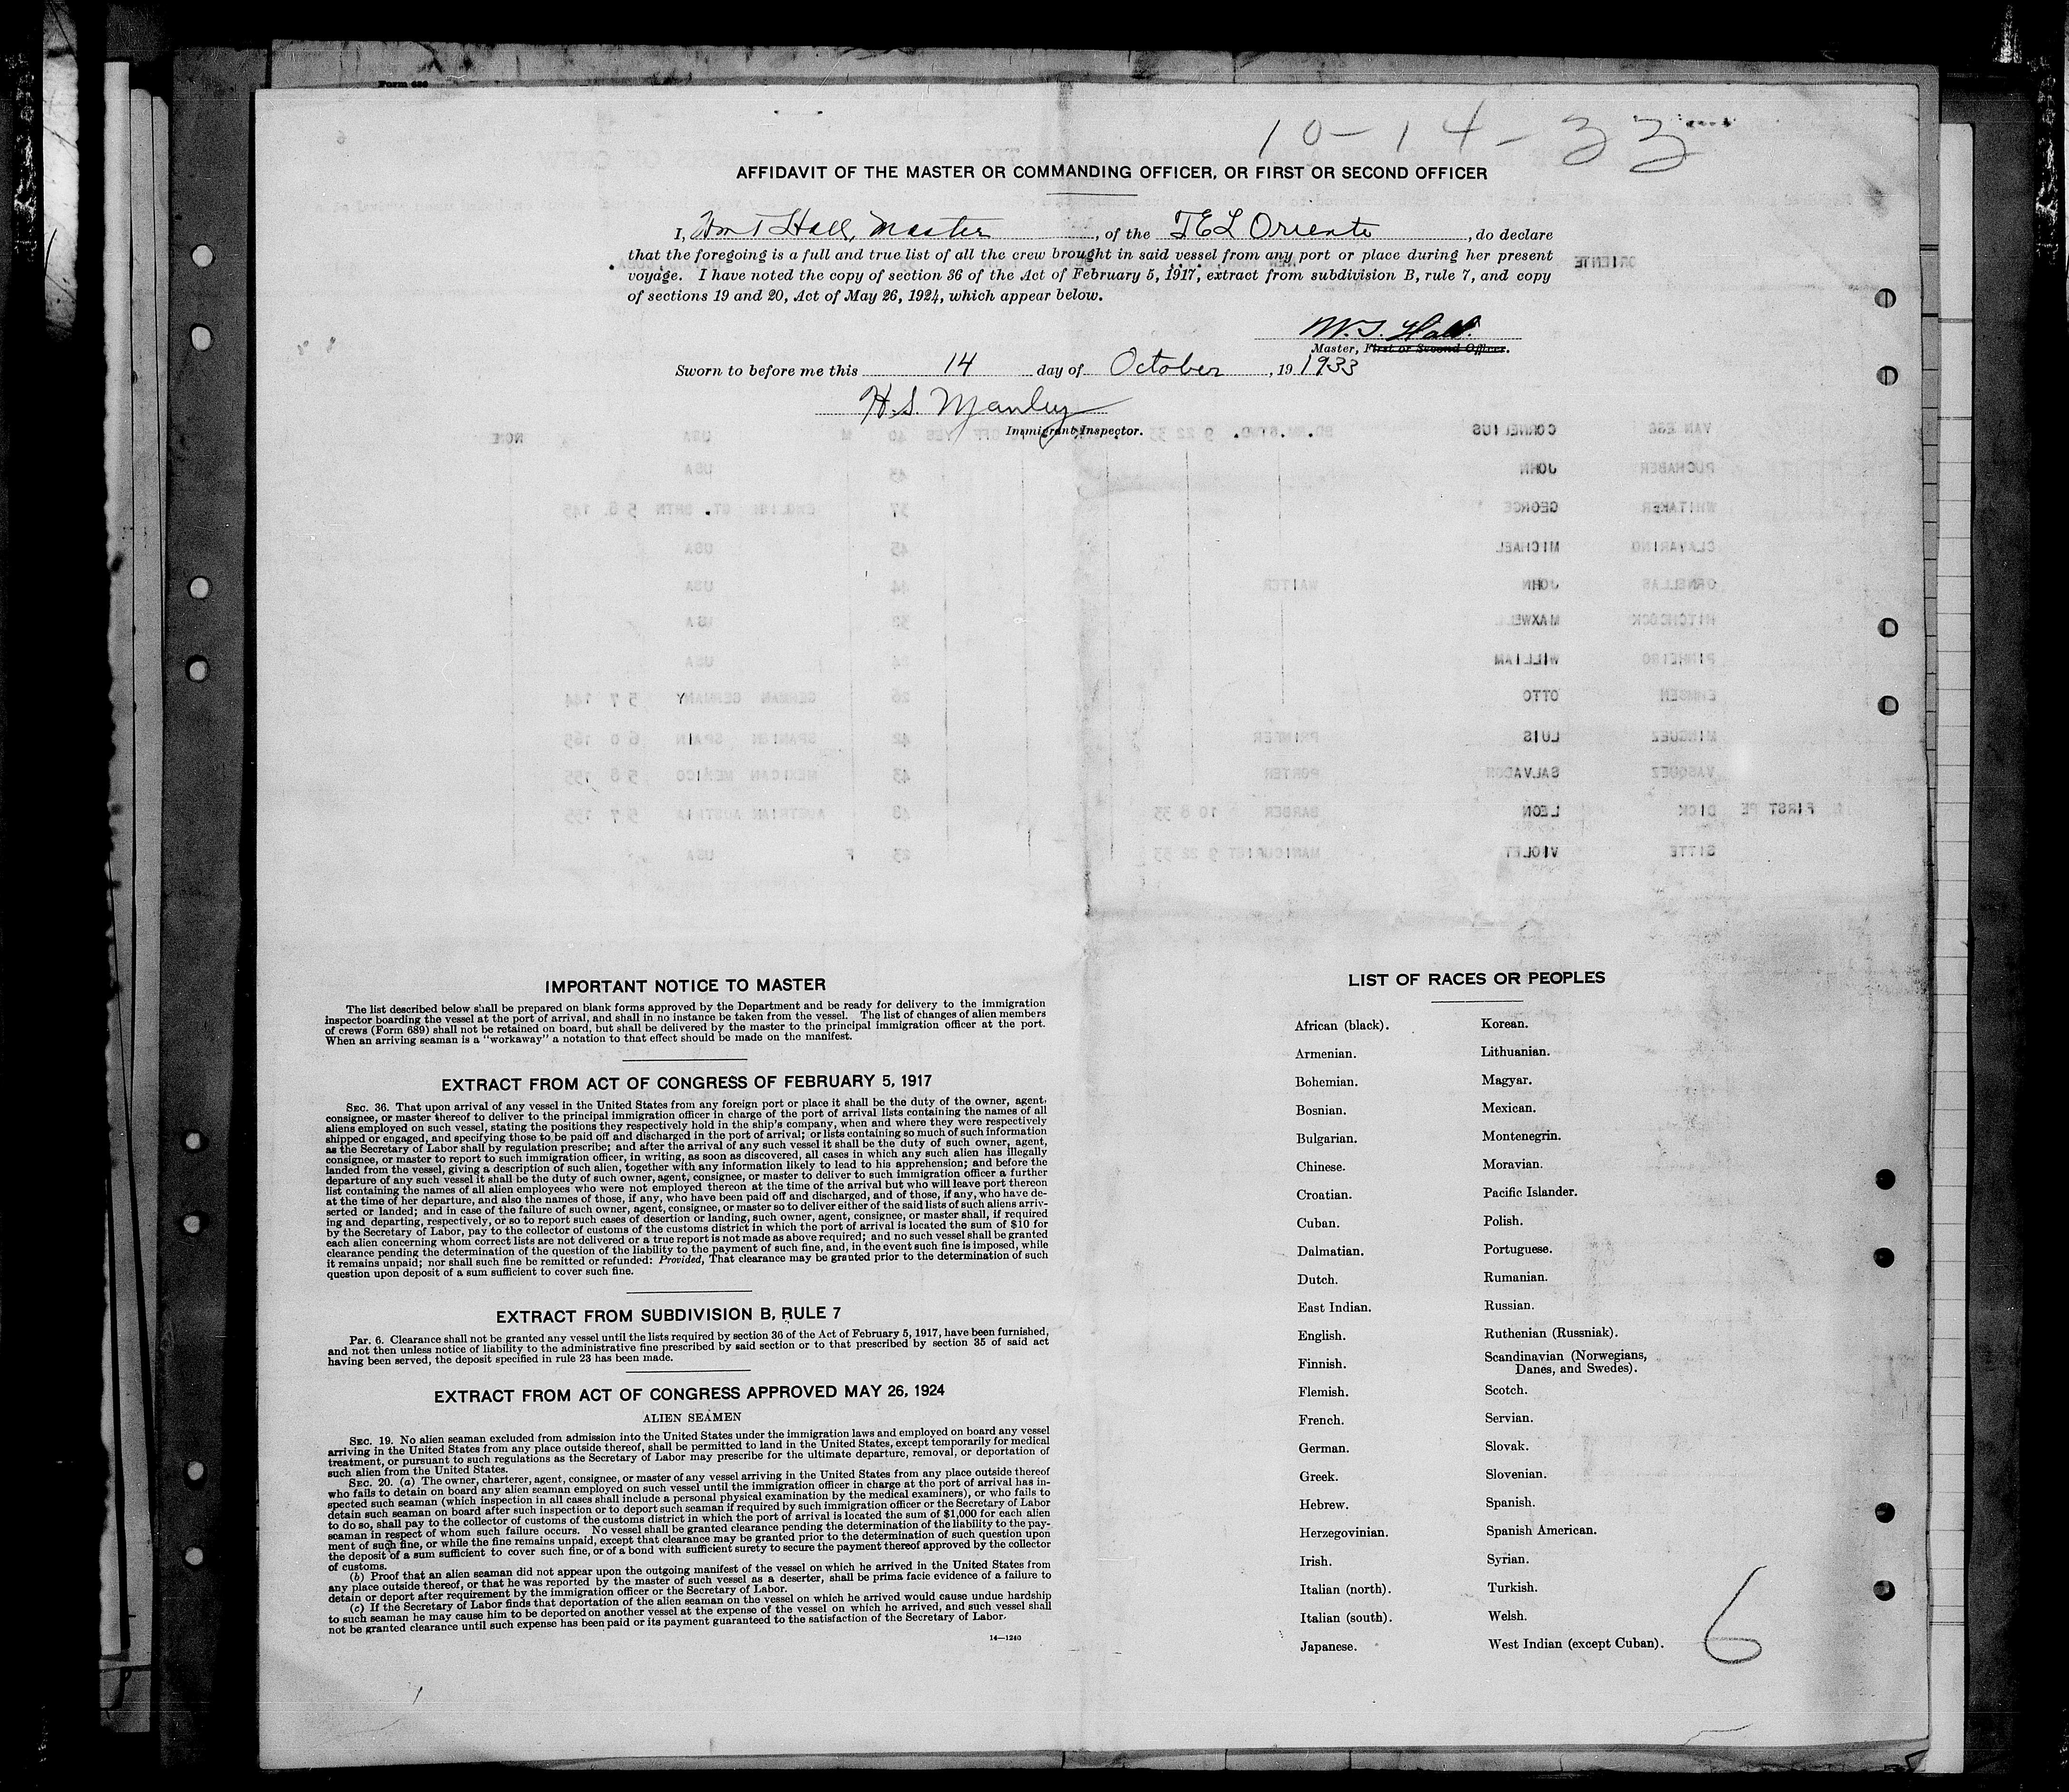 Form 689
10-14-33
AFFIDAVIT OF THE MASTER OR COMMANDING OFFICER, OR FIRST OR SECOND OFFICER
I, Wm T Hall, Master, of the TEL Oriente, do declare
that the foregoing is a full and true list of all the crew brought in said vessel from any port or place during her present
voyage. I have noted the copy of section 36 of the Act of February 5, 1917, extract from subdivision B, rule 7, and copy
of sections 19 and 20, Act of May 26, 1924, which appear below.
W.T. Hall.
Master, First or Second Officer.
Sworn to before me this 14 day of October, 19 1933
H.S. Manley
Immigrant Inspector.
ORIENTE
VAN ESS CORNELIUS BD.RM.STWD. 9 22 33 OFF YES 40 M USA NONE
PUCHABER JOHN 43 USA
WHITAKER GEORGE 37 ENGLISH GT. BRTN 5 6 145
CLAVARINO MICHAEL 45 USA
ORNELLAS JOHN WAITER 44 USA
HITCHCOCK MAXWELL USA
PINHEIRO WILLIAM USA
OTTO 26 GERMAN GERMANY 5 7 144
MINGUEZ LUIS PRINTER 42 SPANISH SPAIN 6 0 165
VASQUEZ SALVADOR PORTER 43 MEXICAN MEXICO 5 8 155
FIRST PE DICK LEON BARBER 10 8 33 48 AUSTRIAN AUSTRIA 5 7 155
SITTE VIOLET MANICURIST 9 22 33 23 F USA
IMPORTANT NOTICE TO MASTER
The list described below shall be prepared on blank forms approved by the Department and be ready for delivery to the immigration
inspector boarding the vessel at the port of arrival, and shall in no instance be taken from the vessel. The list of changes of alien members
of crews (Form 689) shall not be retained on board, but shall be delivered by the master to the principal immigration officer at the port.
When an arriving seaman is a "workaway" a notation to that effect should be made on the manifest.
EXTRACT FROM ACT OF CONGRESS OF FEBRUARY 5, 1917
SEC. 36. That upon arrival of any vessel in the United States from any foreign port or place it shall be the duty of the owner, agent,
consignee, or master thereof to deliver to the principal immigration officer in charge of the port of arrival lists containing the names of all
aliens employed on such vessel, stating the positions they respectively hold in the ship's company, when and where they were respectively
shipped or engaged, and specifying those to be paid off and discharged in the port of arrival; or lists containing so much of such information
as the Secretary of Labor shall by regulation prescribe; and after the arrival of any such vessel it shall be the duty of such owner, agent,
consignee, or master to report to such immigration officer, in writing, as soon as discovered, all cases in which any such alien has illegally
landed from the vessel, giving a description of such alien, together with any information likely to lead to his apprehension; and before the
departure of any such vessel it shall be the duty of such owner, agent, consignee, or master to deliver to such immigration officer a further
list containing the names of all alien employees who were not employed thereon at the time of the arrival but who will leave port thereon
at the time of her departure, and also the names of those, if any, who have been paid off and discharged, and of those, if any, who have de-
serted or landed; and in case of the failure of such owner, agent, consignee, or master so to deliver either of the said lists of such aliens arriv-
ing and departing, respectively, or so to report such cases of desertion or landing, such owner, agent, consignee, or master shall, if required
by the Secretary of Labor, pay to the collector of customs of the customs district in which the port of arrival is located the sum of $10 for
each alien concerning whom correct lists are not delivered or a true report is not made as above required; and no such vessel shall be granted
clearance pending the determination of the question of the liability to the payment of such fine, and, in the event such fine is imposed, while
it remains unpaid; nor shall such fine be remitted or refunded: Provided, That clearance may be granted prior to the determination of such
question upon deposit of a sum sufficient to cover such fine.
EXTRACT FROM SUBDIVISION B, RULE 7
Par. 6. Clearance shall not be granted any vessel until the lists required by section 36 of the Act of February 5, 1917, have been furnished,
and not then unless notice of liability to the administrative fine prescribed by said section or to that prescribed by section 35 of said act
having been served, the deposit specified in rule 23 has been made.
EXTRACT FROM ACT OF CONGRESS APPROVED MAY 26, 1924
ALIEN SEAMEN
SEC. 19. No alien seaman excluded from admission into the United States under the immigration laws and employed on board any vessel
arriving in the United States from any place outside thereof, shall be permitted to land in the United States, except temporarily for medical
treatment, or pursuant to such regulations as the Secretary of Labor may prescribe for the ultimate departure, removal, or deportation of
such alien from the United States.
SEC. 20. (a) The owner, charterer, agent, consignee, or master of any vessel arriving in the United States from any place outside thereof
who fails to detain on board any alien seaman employed on such vessel until the immigration officer in charge at the port of arrival has in-
spected such seaman (which inspection in all cases shall include a personal physical examination by the medical examiners), or who fails to
detain such seaman on board after such inspection or to deport such seaman if required by such immigration officer or the Secretary of Labor
to do so, shall pay to the collector of customs of the customs district in which the port of arrival is located the sum of $1,000 for each alien
seaman in respect of whom such failure occurs. No vessel shall be granted clearance pending the determination of the liability to the pay-
ment of such fine, or while the fine remains unpaid, except that clearance may be granted prior to the determination of such question upon
the deposit of a sum sufficient to cover such fine, or of a bond with sufficient surety to secure the payment thereof approved by the collector
of customs.
(b) Proof that an alien seaman did not appear upon the outgoing manifest of the vessel on which he arrived in the United States from
any place outside thereof, or that he was reported by the master of such vessel as a deserter, shall be prima facie evidence of a failure to
detain or deport after requirement by the immigration officer or the Secretary of Labor.
(c) If the Secretary of Labor finds that deportation of the alien seaman on the vessel on which he arrived would cause undue hardship
to such seaman he may cause him to be deported on another vessel at the expense of the vessel on which he arrived, and such vessel shall
not be granted clearance until such expense has been paid or its payment guaranteed to the satisfaction of the Secretary of Labor.
14—1240
LIST OF RACES OR PEOPLES
African (black). Korean.
Armenian. Lithuanian.
Bohemian. Magyar.
Bosnian. Mexican.
Bulgarian. Montenegrin.
Chinese. Moravian.
Croatian. Pacific Islander.
Cuban. Polish.
Dalmatian. Portuguese.
Dutch. Rumanian.
East Indian. Russian.
English. Ruthenian (Russniak).
Finnish. Scandinavian (Norwegians,
Danes, and Swedes).
Flemish. Scotch.
French. Servian.
German. Slovak.
Greek. Slovenian.
Hebrew. Spanish.
Herzegovinian. Spanish American.
Irish. Syrian.
Italian (north). Turkish.
Italian (south). Welsh.
Japanese. West Indian (except Cuban).
6